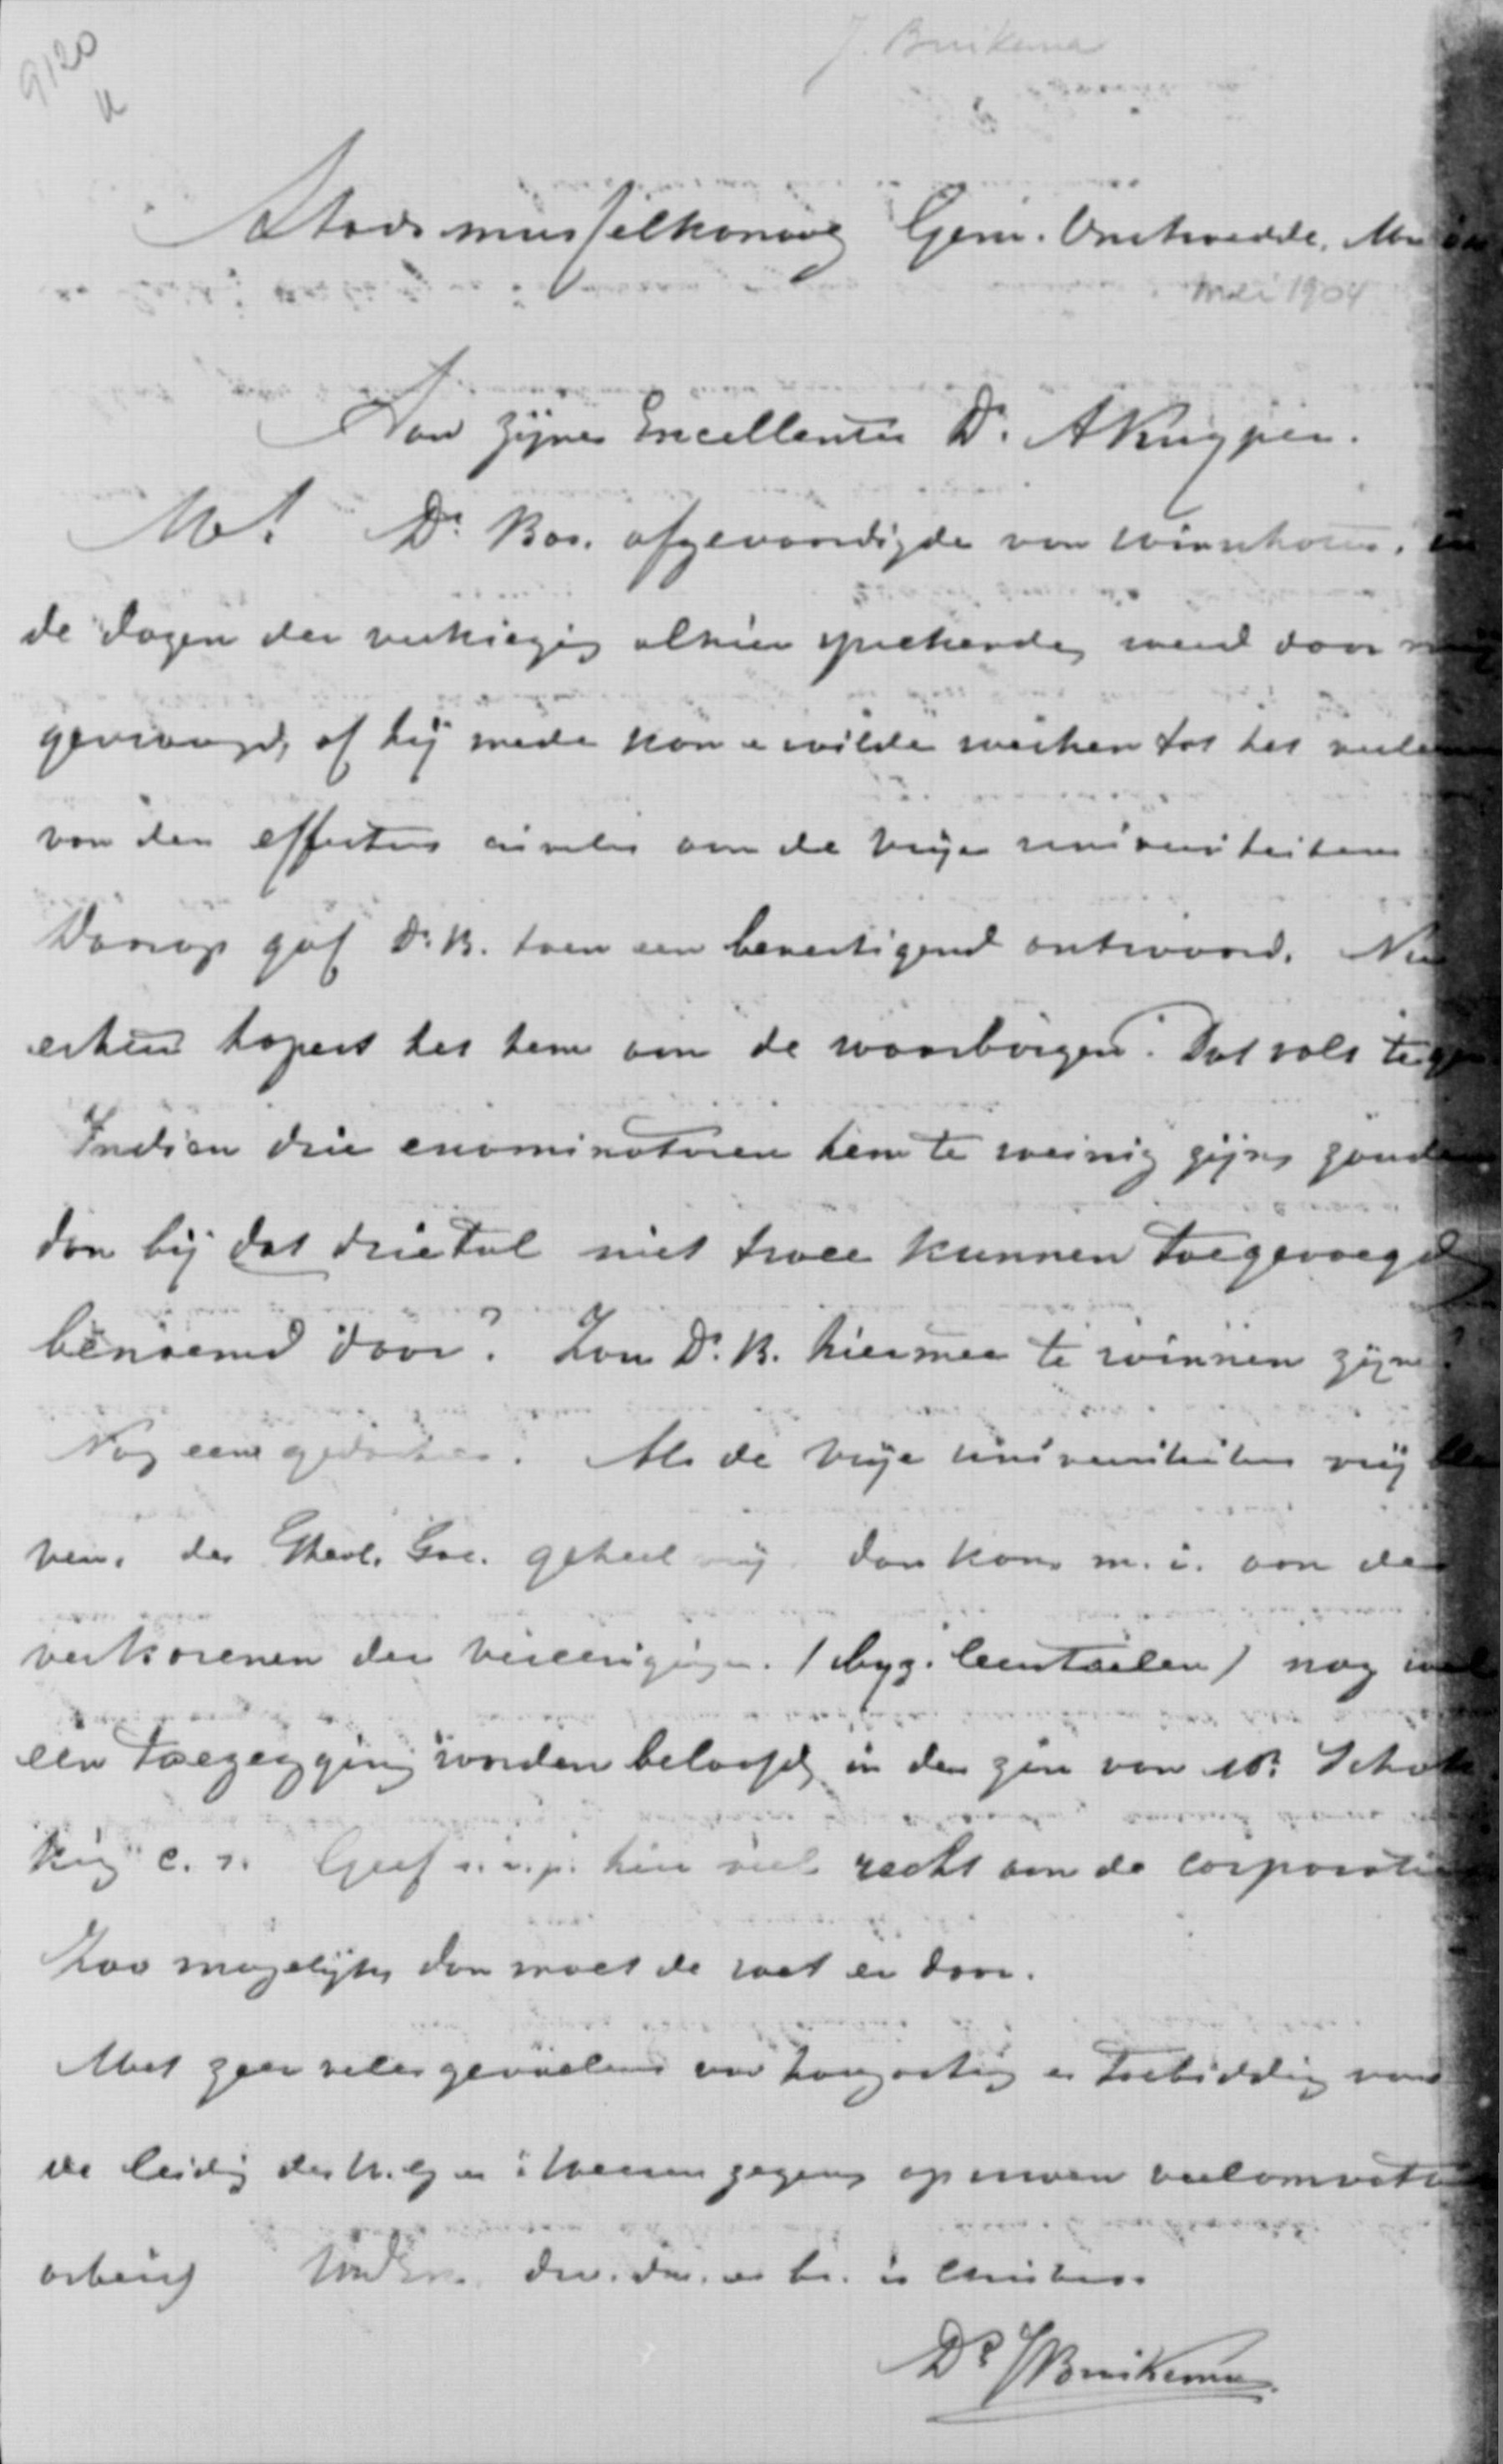 9120
J. Buikema
Stadsmusselkanaal Gem. Onstwedde.
Mei 1904
Aan Zijne Excellentie Dr. A Kuyper.
Dr. Bos. afgevaardigde van Winschoten. in
de dagen der verkiezing alhier sprekende, werd door mij
gevraagd, of hij mede kon en wilde werken tot het
van den effectus civilis aan de vrije universiteiten
Daarop gaf Dr. B. toen een bevestigend antwoord. Nu
echter hapert het hem aan de waarborgen. Dat valt tegen
Indien drie examinatoren hem te weinig zijn, zouden
dan bij dat drietal niet twee kunnen toegevoegd
benoemd door? Zou Dr. B. hiermee te winnen zijn?
Nog eene gedachte. Als de vrije universiteiten vrij blij
ven, de Theol. Fac. geheel vrij dan kan m. i. aan de
verkorenen der vereenigingen. (bijz. Curatoren) nog wel
een toezegging worden beloofd, in den zin van
c. s. Geef s.v.p. hier veel recht aan de corporatie
Zoo mogelijk, dan moet de wet er door.
Met zeer vele gevoelens van hoogachting en toebidding van
de leiding des H. G. en 's Heeren zegen op uwen veelomvattenden
arbeid dw. dn. en br. in Christus.
Dr. J Buikema